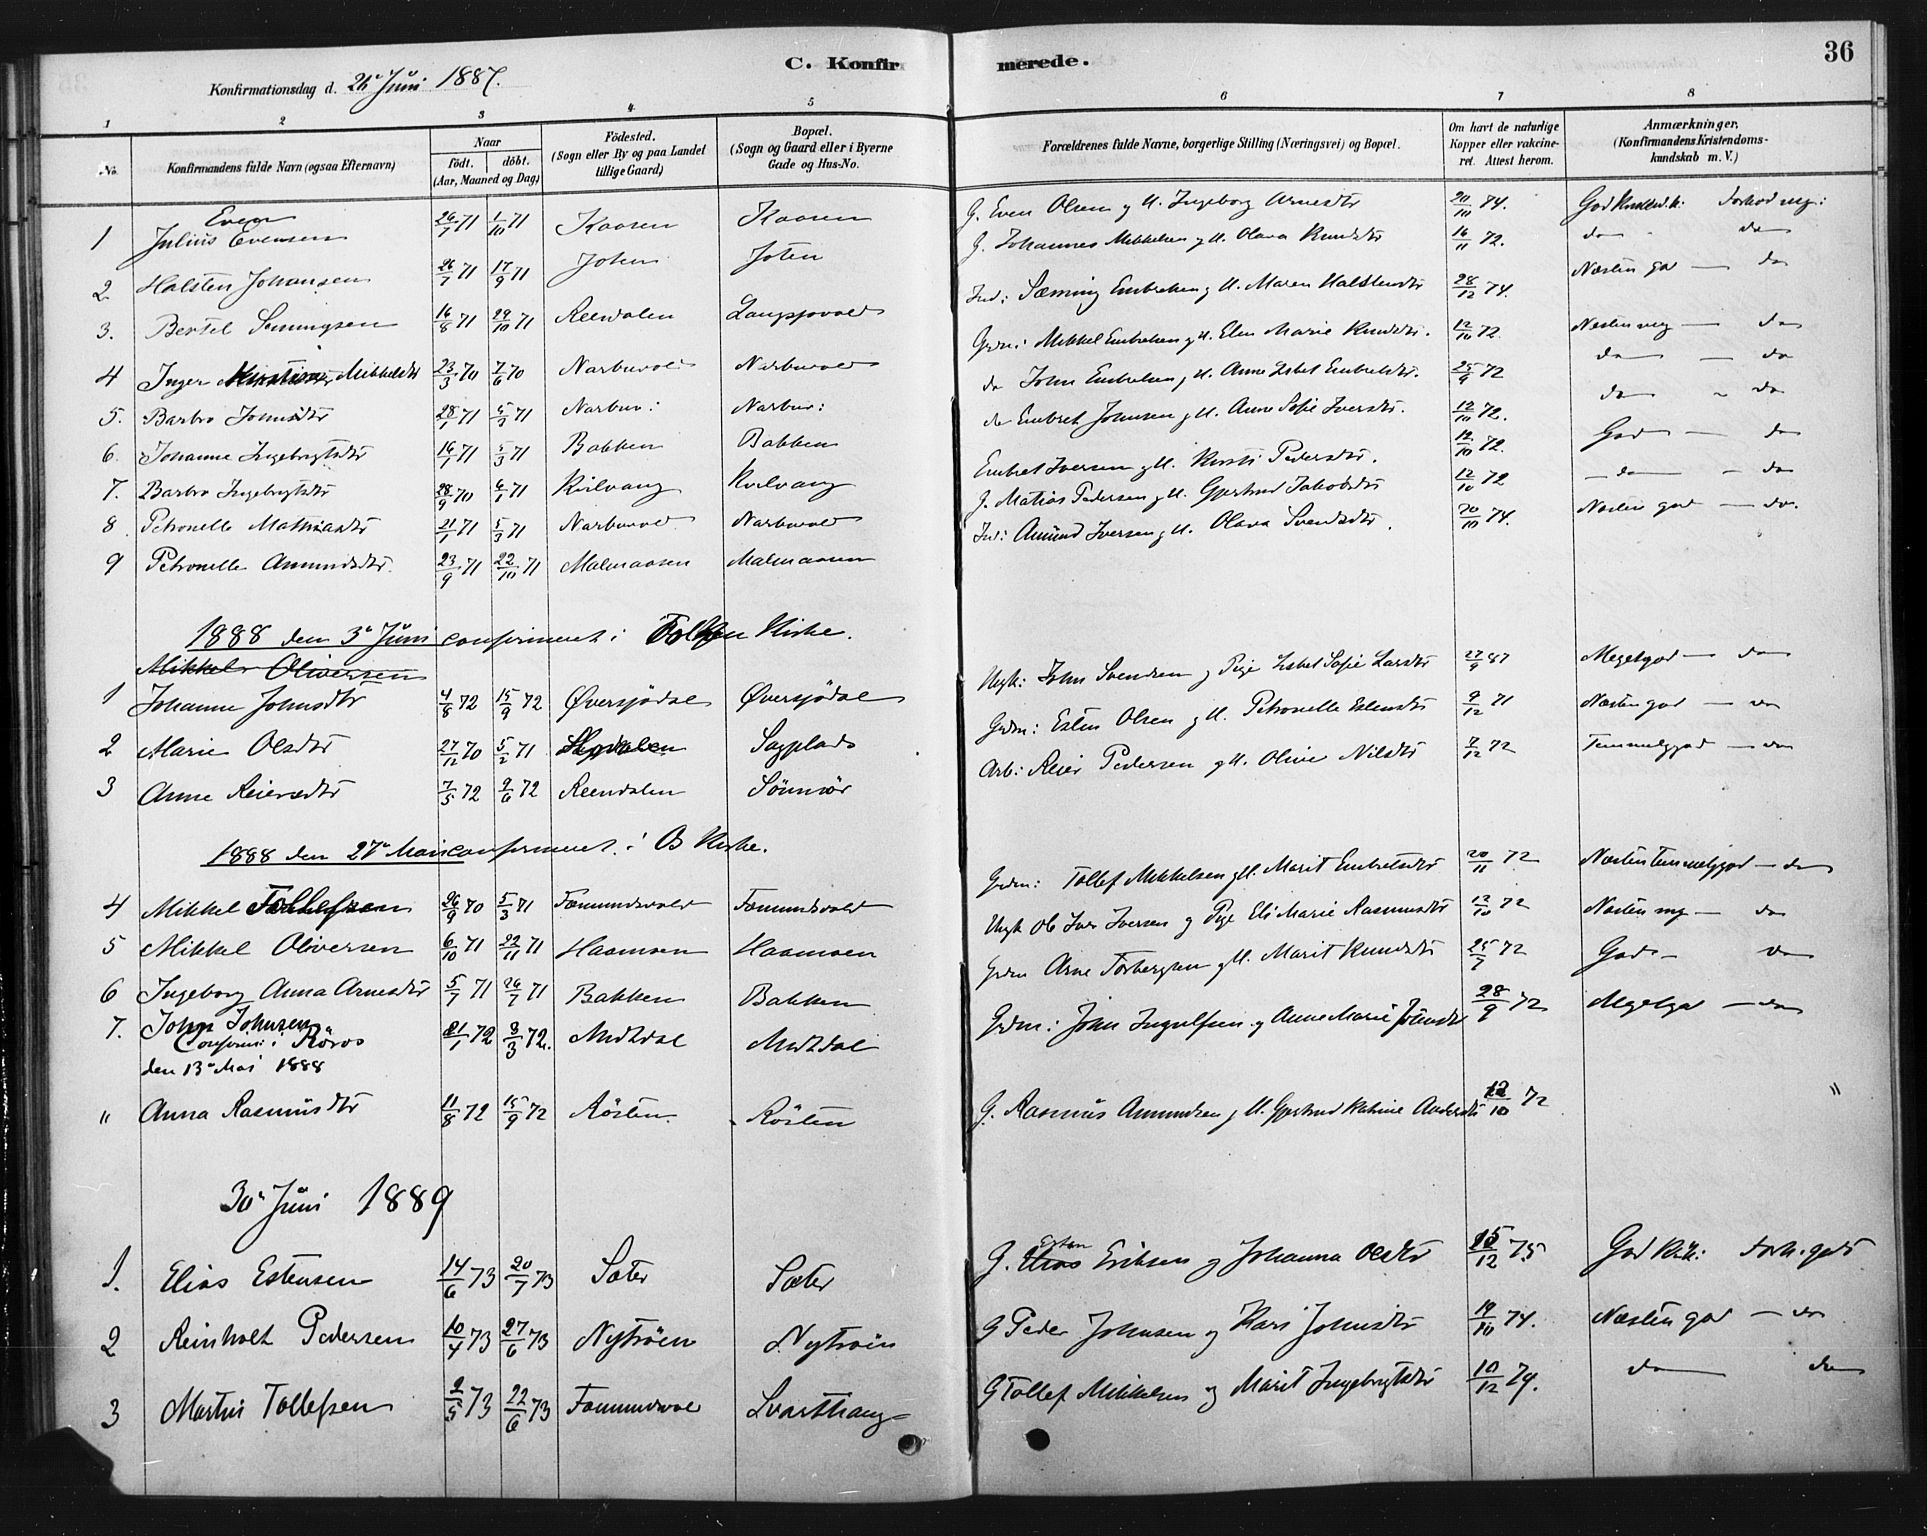 C. Konfirmerede.
36
Konfirmationsdag d. Juni 1887.
1 2 3 4 5 6 7 8
No. Konfirmandens fulde Navn (ogsaa Efternavn) Naar födt. döbt. (Aar, Maaned og Dag) Födested. (Sogn eller By og paa Landet tillige Gaard) Bopæl. (Sogn og Gaard eller i Byerne Gade og Hus-No. Forældrenes fulde Navne, borgerlige Stilling (Næringsvei) og Bopæl. Om havt de naturlige Kopper eller vakcineret. Attest herom. Anmærkninger, (Konfirmandens Kristendomskundskab m. V.)
Even
1 Julius Evensen 26/7 71 1/10 71 G. Even Olsen g U. Ingeborg Arnesdtr 20/10 74.
2 Halsten Johansen 26/7 71 17/9 71 Joten Joten G. Johannes Mikkelsen g U. Olava Knudsdtr 16/11 72. do do
3. Bertel Semmingsen 16/8 71 29/10 71 Reendalen Ind: Sæming Embretsen g U. Maren Halstensdtr 28/12 74. Næsten god — do
4 Inger Mikkelsdtr 23/3 70 7/6 70 Narbuvold Narbuvold Grdm: Mikkel Embretsen g U. Elen Marie Knudsdtr. 12/10 72. Næsten mg — do
5. Barbro Johnsdtr 28/1 71 5/3 71 Narbuv: Narbuv: do John Embretsen g U. Anne Lisbet Embretsdtr. 25/9 72 do — do
6. Johanne Ingebrigtsdtr 16/1 71 5/3 71 Bakken Bakken do Embret Johnsen g U. Anne Sofie Iversdtr. 12/10 72. do - do
7. Barbro Ingebrigtsdtr 28/9 70 6/1 71 Kvilvang Kvilvang Embret Iversen g U. Kirsti Pedersdtr. 12/10 72. God — do
8 Petronelle Mathiasdtr 21/1 71 5/3 71 Narbuvold Narbuvold G. Matias Pedersen g U. Gjertrud Jakobsdtr 12/10 72 — do — do
9 Petronelle Amundsdtr. 23/9 71 22/10 71 Malmaasen Malmaasen Ind: Amund Iversen g U. Olava Svendsdtr. 20/10 74. Næsten god — do.
1888 den 3de Juni confirmeret i Kirke.
Mikkel Oliversen
1 Johanne Johnsdtr 4/8 72 15/9 72 Øversjödal Øversjödal Ungk: John Svendsen og Pige Lisbet Sofie Larsdtr 27/9 87 Megetgod — do
2 Marie Olsdtr 27/12 70 5/2 71 Sagplads Grdm: Esten Olsen g U. Petronelle Estensdtr 9/12 71 Næsten god — do
3 Anne Reiersdtr 7/5 72 9/6 72 Reendalen Sönmör Arb: Reier Pedersen g U. Olive Nilsdtr 9/12 72 Temmeliggod — do
1888 den 27de Mai confirmeret i B Kirke.
4 Mikkel Tollefsen 26/9 70 5/3 71 Fæmundsvold Fæmundsvold Grdm: Tollef Mikkelsen g U. Marit Embretsdtr 20/11 72 Næsten temmeliggod — do
5 Mikkel Oliversen 6/10 71 22/11 71 Haamoen Haamoen Ungk Ol Iver Iversen og Pige Eli Marie Rasmusdtr 12/10 72 Næsten mg — do
6 Ingeborg Anna Arnesdtr 5/7 71 26/7 71 Bakken Bakken Grdm Arne Torbergsen g U. Marit Knudsdtr 25/7 72 God - do
7. John Johnsen 21/1 72 3/3 72. Midtdal Midtdal Grdm: John Ingulfsen og Anne Marie Johnsdtr 28/9 72 Megetgod — do
Conferm: i Röros
den 13de Mai 1888
" Anna Rasmusdtr 11/8 72 15/9 72 Rösten. Rösten G. Rasmus Amundsen g U. Gjertrud Katrine Andersdtr 12/10 72 "
30de Juni 1889
1. Elias Estensen 14/6 73 20/7 73 Sæter Sæter G. Esten Eriksen og Johanna Olsdtr 15/12 75 God Kdsk: Forh. godt
2 Reinholt Pedersen 10/4 73 27/6 73 Nytröen Nytröen G Peder Johnsen og Kari Johnsdtr 19/10 74. Næsten god — do
3 Martin Tollefsen 2/5 73 22/6 73 Fæmundsvold Svarthaug G Tollef Mikkelsen og Marit Ingebrigtsdtr 10/12 74. do do